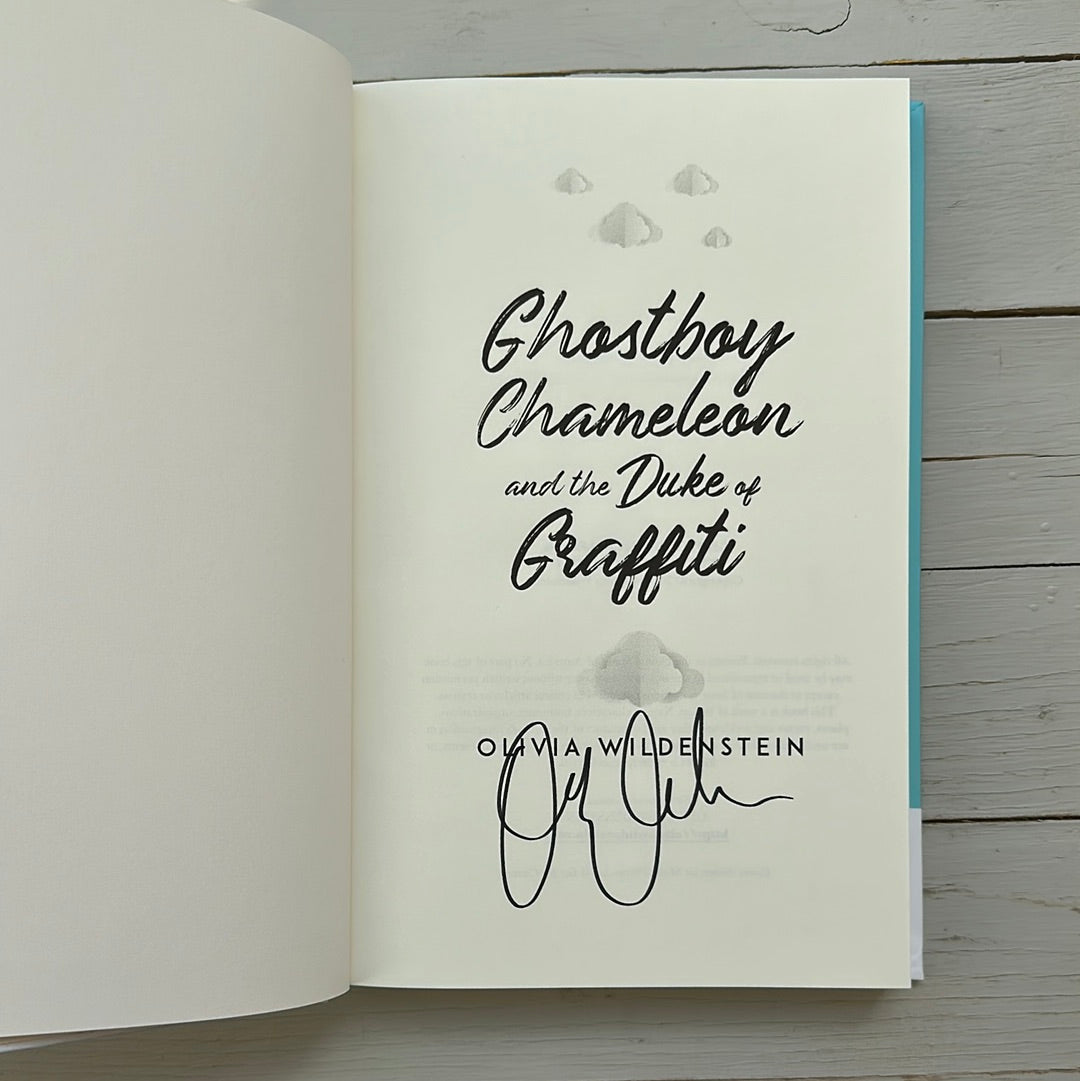 Ghostboy
Chameleon
and the Duke of
Graffiti
OLIVIA WILDENSTEIN